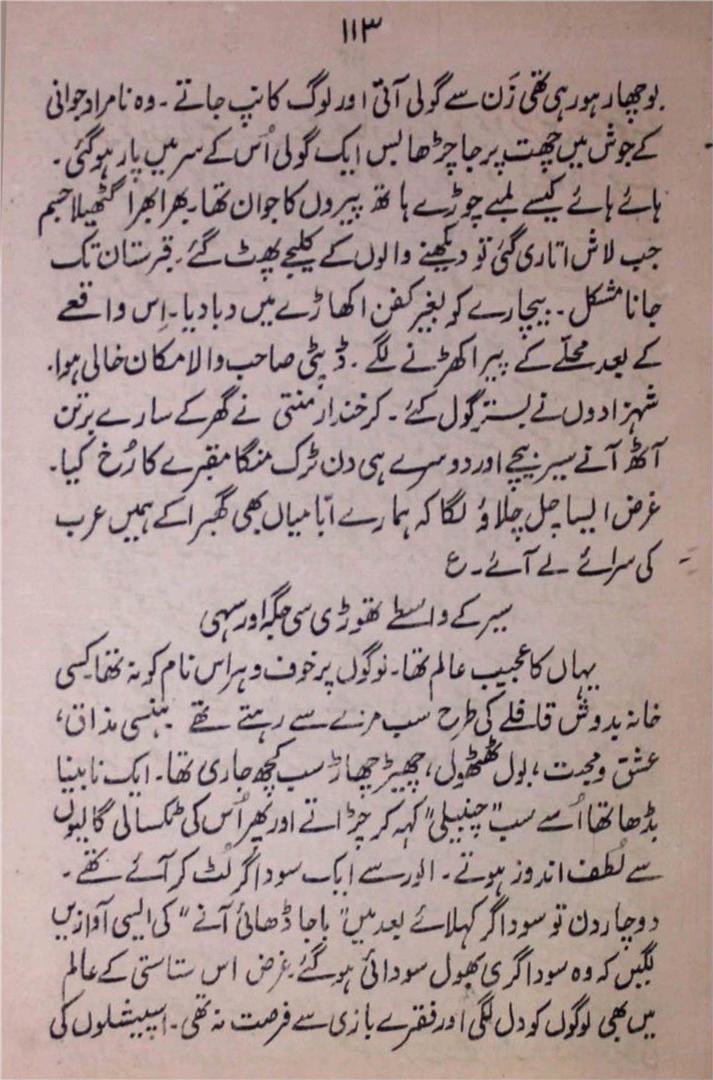 ۱۱۳
بوچھار ہو رہی تھی زَن سے گولی آتی اور لوگ کانپ جاتے۔ وہ نامراد جوانی
کے جوش میں چھت پر جا چڑھا بس ایک گولی اُس کے سر میں پار ہو گئی۔
ہائے ہائے کیسے لمبے چوڑے ہاتھ پیروں کا جوان تھا۔ بھرا بھرا گٹھیلا جسم
جب لاش اتاری گئی تو دیکھنے والوں کے کلیجے پھٹ گئے۔ قبرستان تک
جانا مشکل۔ بیچارے کو بغیر کفن اکھاڑے میں دبا دیا۔ اِس واقعے
کے بعد محلّے کے پیر اکھڑنے لگے۔ ڈپٹی صاحب والا مکان خالی ہوا۔
شہزادوں نے بستر گول کئے۔ کرخندار منتی نے گھر کے سارے برتن
آٹھ آنے سیر بیچے اور دوسرے ہی دن ٹرک منگا مقبرے کا رُخ کیا۔
غرض ایسا چل چلاؤ لگا کہ ہمارے ابّا میاں بھی گھبرا کے ہمیں عرب
کی سرائے لے آئے۔ ع
سیر کے واسطے تھوڑی سی جگہ اور سہی
یہاں کا عجیب عالم تھا۔ لوگوں پر خوف و ہراس نام کو نہ تھا کسی
خانہ بدوش قافلے کی طرح سب مزے سے رہتے تھے ہنسی مذاق،
عشق و محبت، بول ٹھٹھول، چھیڑ چھاڑ سب کچھ جاری تھا۔ ایک نابینا
بڈھا تھا اُسے سب "چنبیلی" کہہ کر چڑاتے اور پھر اُس کی ٹکسالی گالیوں
سے لُطف اندوز ہوتے۔ الور سے ایک سوداگر لُٹ کر آئے تھے۔
دو چار دن تو سوداگر کہلائے بعد میں "باجا ڈھائی آنے" کی ایسی آوازیں
لگیں کہ وہ سوداگری بھول سودائی ہو گئے۔ غرض اس ستاستی کے عالم
میں بھی لوگوں کو دل لگی اور فقرے بازی سے فرصت نہ تھی۔ اسپیشلوں کی